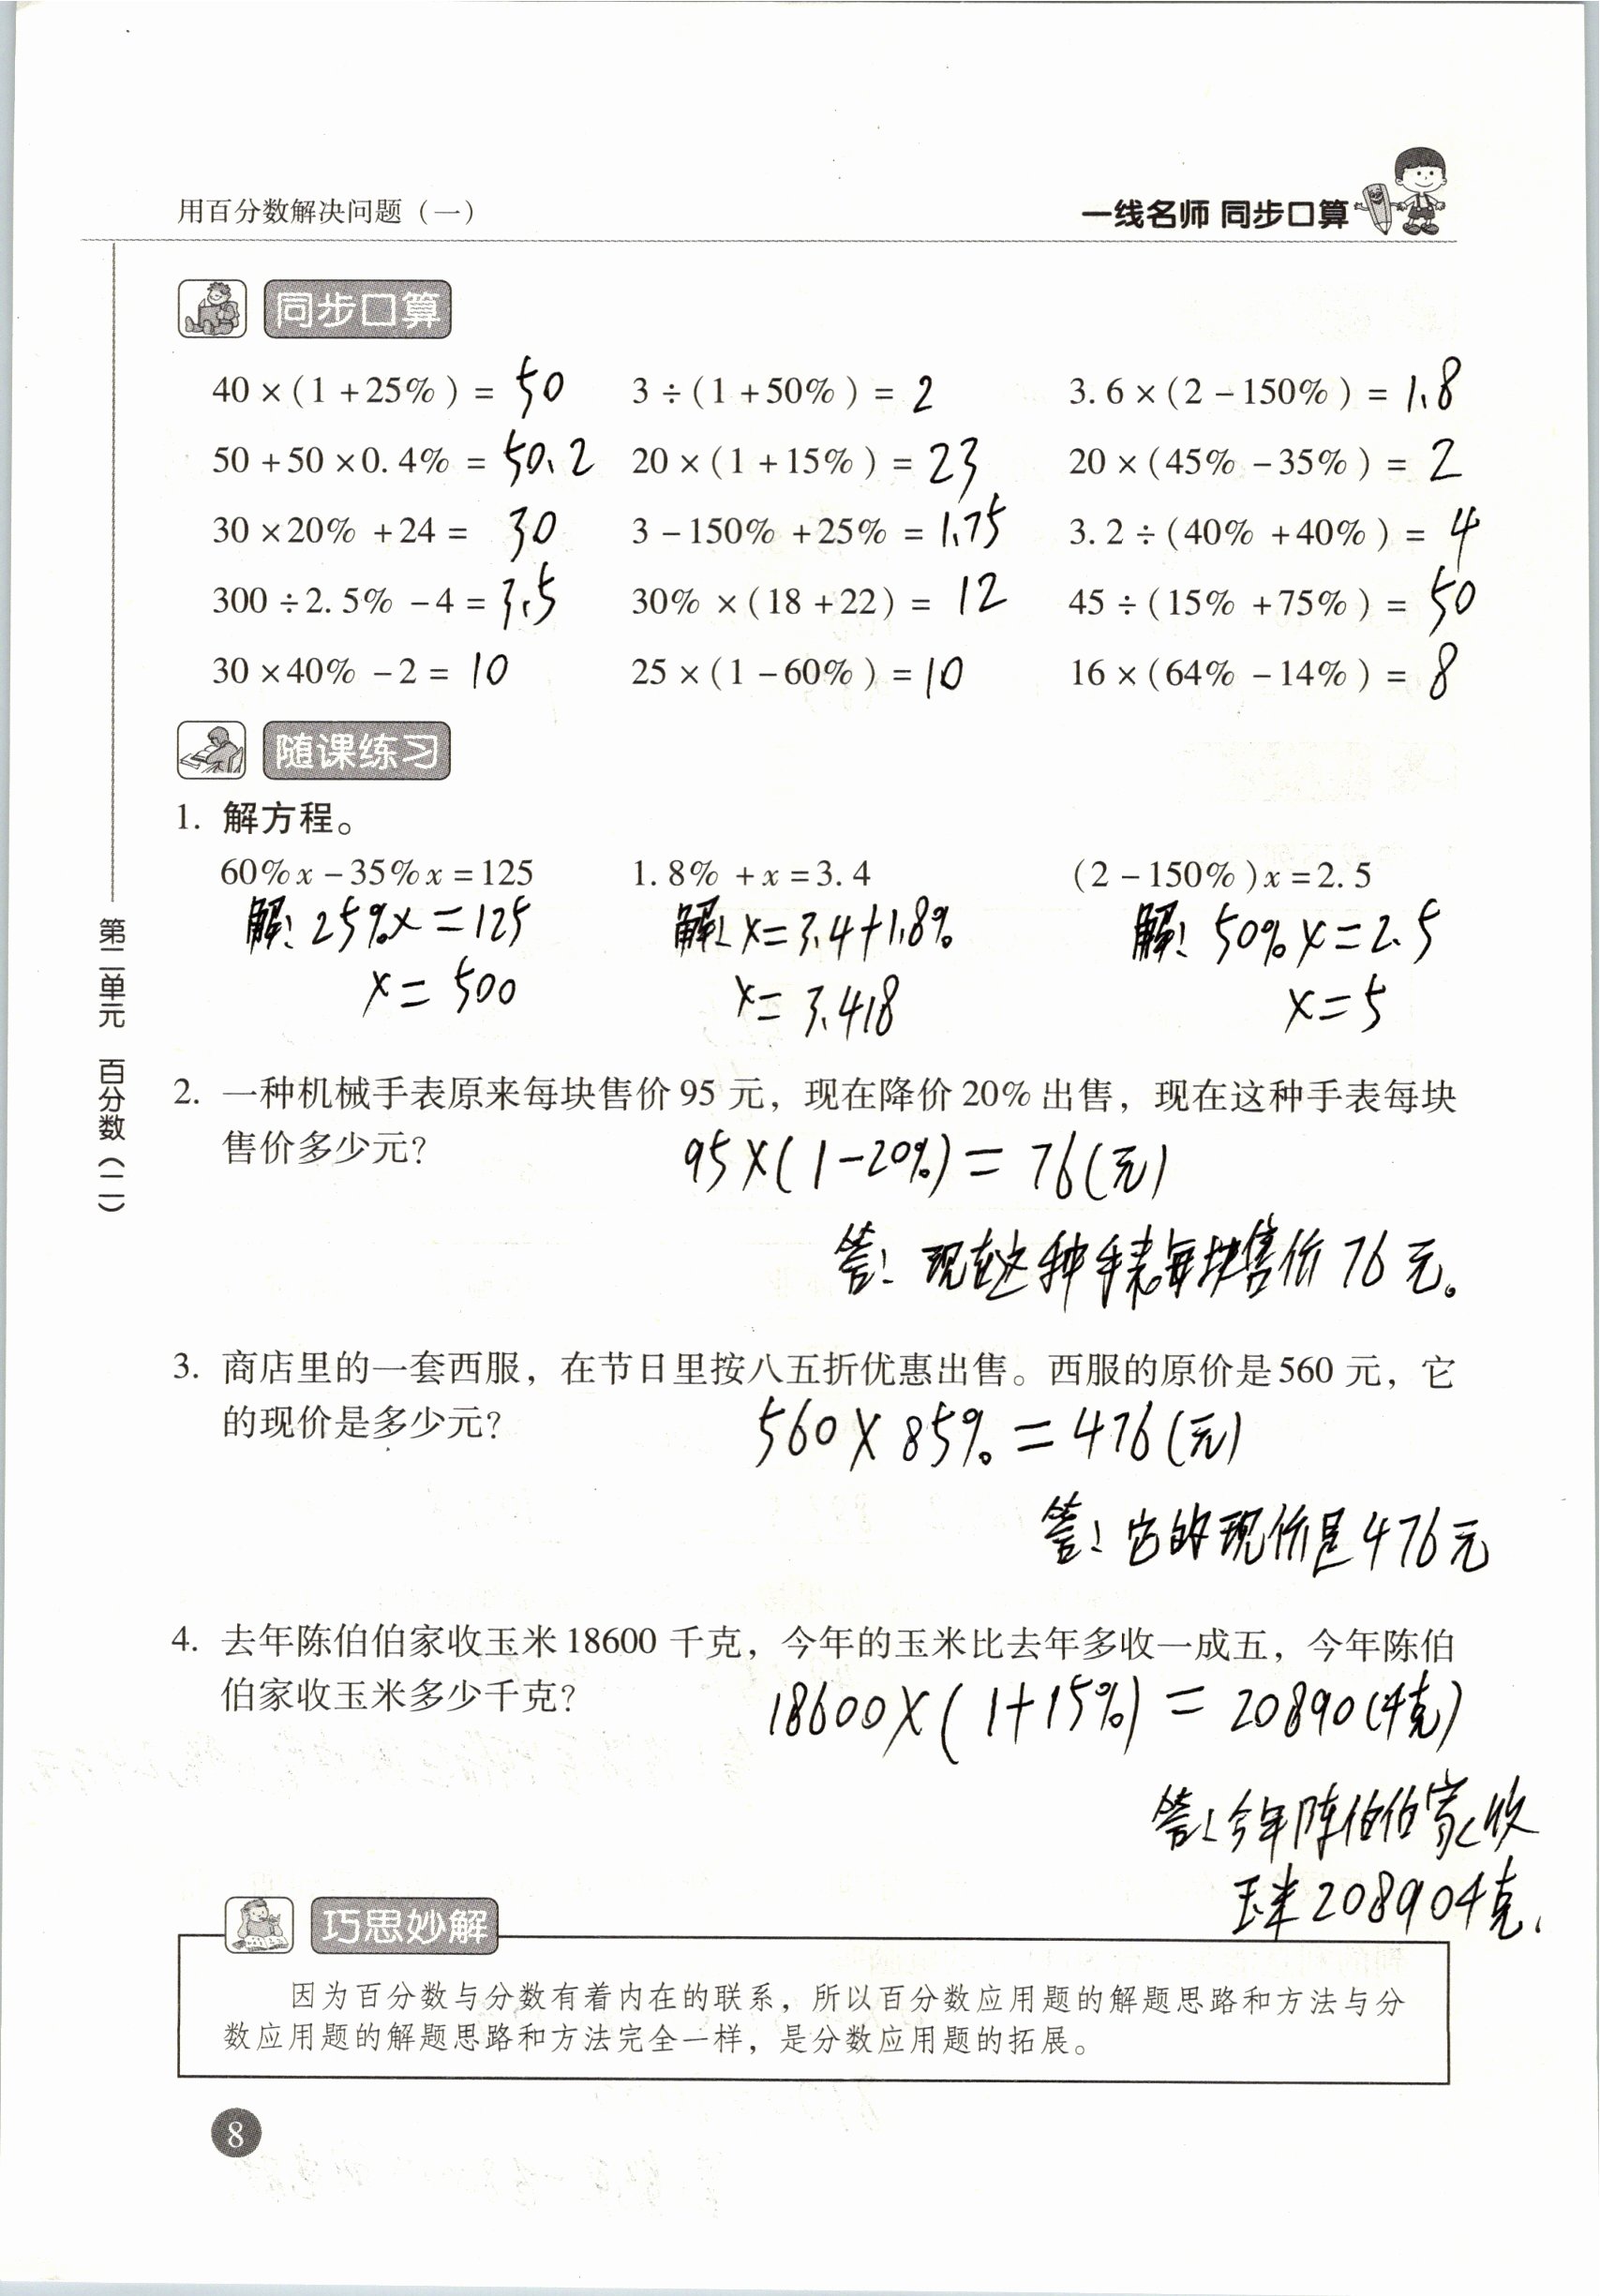 用百分数解决问题（一）
一线名师 同步口算
同步口算
40×(1+25%)= 50 3÷(1+50%)= 2 3.6×(2-150%)= 1.8
50+50×0.4%= 50.2 20×(1+15%)= 23 20×(45%-35%)= 2
30×20%+24= 30 3-150%+25%= 1.75 3.2÷(40%+40%)= 4
300÷2.5%-4= 3.5 30%×(18+22)= 12 45÷(15%+75%)= 50
30×40%-2= 10 25×(1-60%)= 10 16×(64%-14%)= 8
随课练习
1. 解方程。
60%x-35%x=125 1.8%+x=3.4 (2-150%)x=2.5
解: 25%x=125 解: x=3.4+1.8% 解: 50%x=2.5
x=500 x=3.418 x=5
2. 一种机械手表原来每块售价95元，现在降价20%出售，现在这种手表每块
售价多少元？ 95×(1-20%)=76(元)
答: 现在这种手表每块售价76元。
3. 商店里的一套西服，在节日里按八五折优惠出售。西服的原价是560元，它
的现价是多少元？ 560×85%=476(元)
答: 它的现价是476元
4. 去年陈伯伯家收玉米18600千克，今年的玉米比去年多收一成五，今年陈伯
伯家收玉米多少千克？ 18600×(1+15%)=20890(千克)
答: 今年陈伯伯家收
玉米20890千克.
巧思妙解
因为百分数与分数有着内在的联系，所以百分数应用题的解题思路和方法与分
数应用题的解题思路和方法完全一样，是分数应用题的拓展。
第二单元 百分数（二）
8